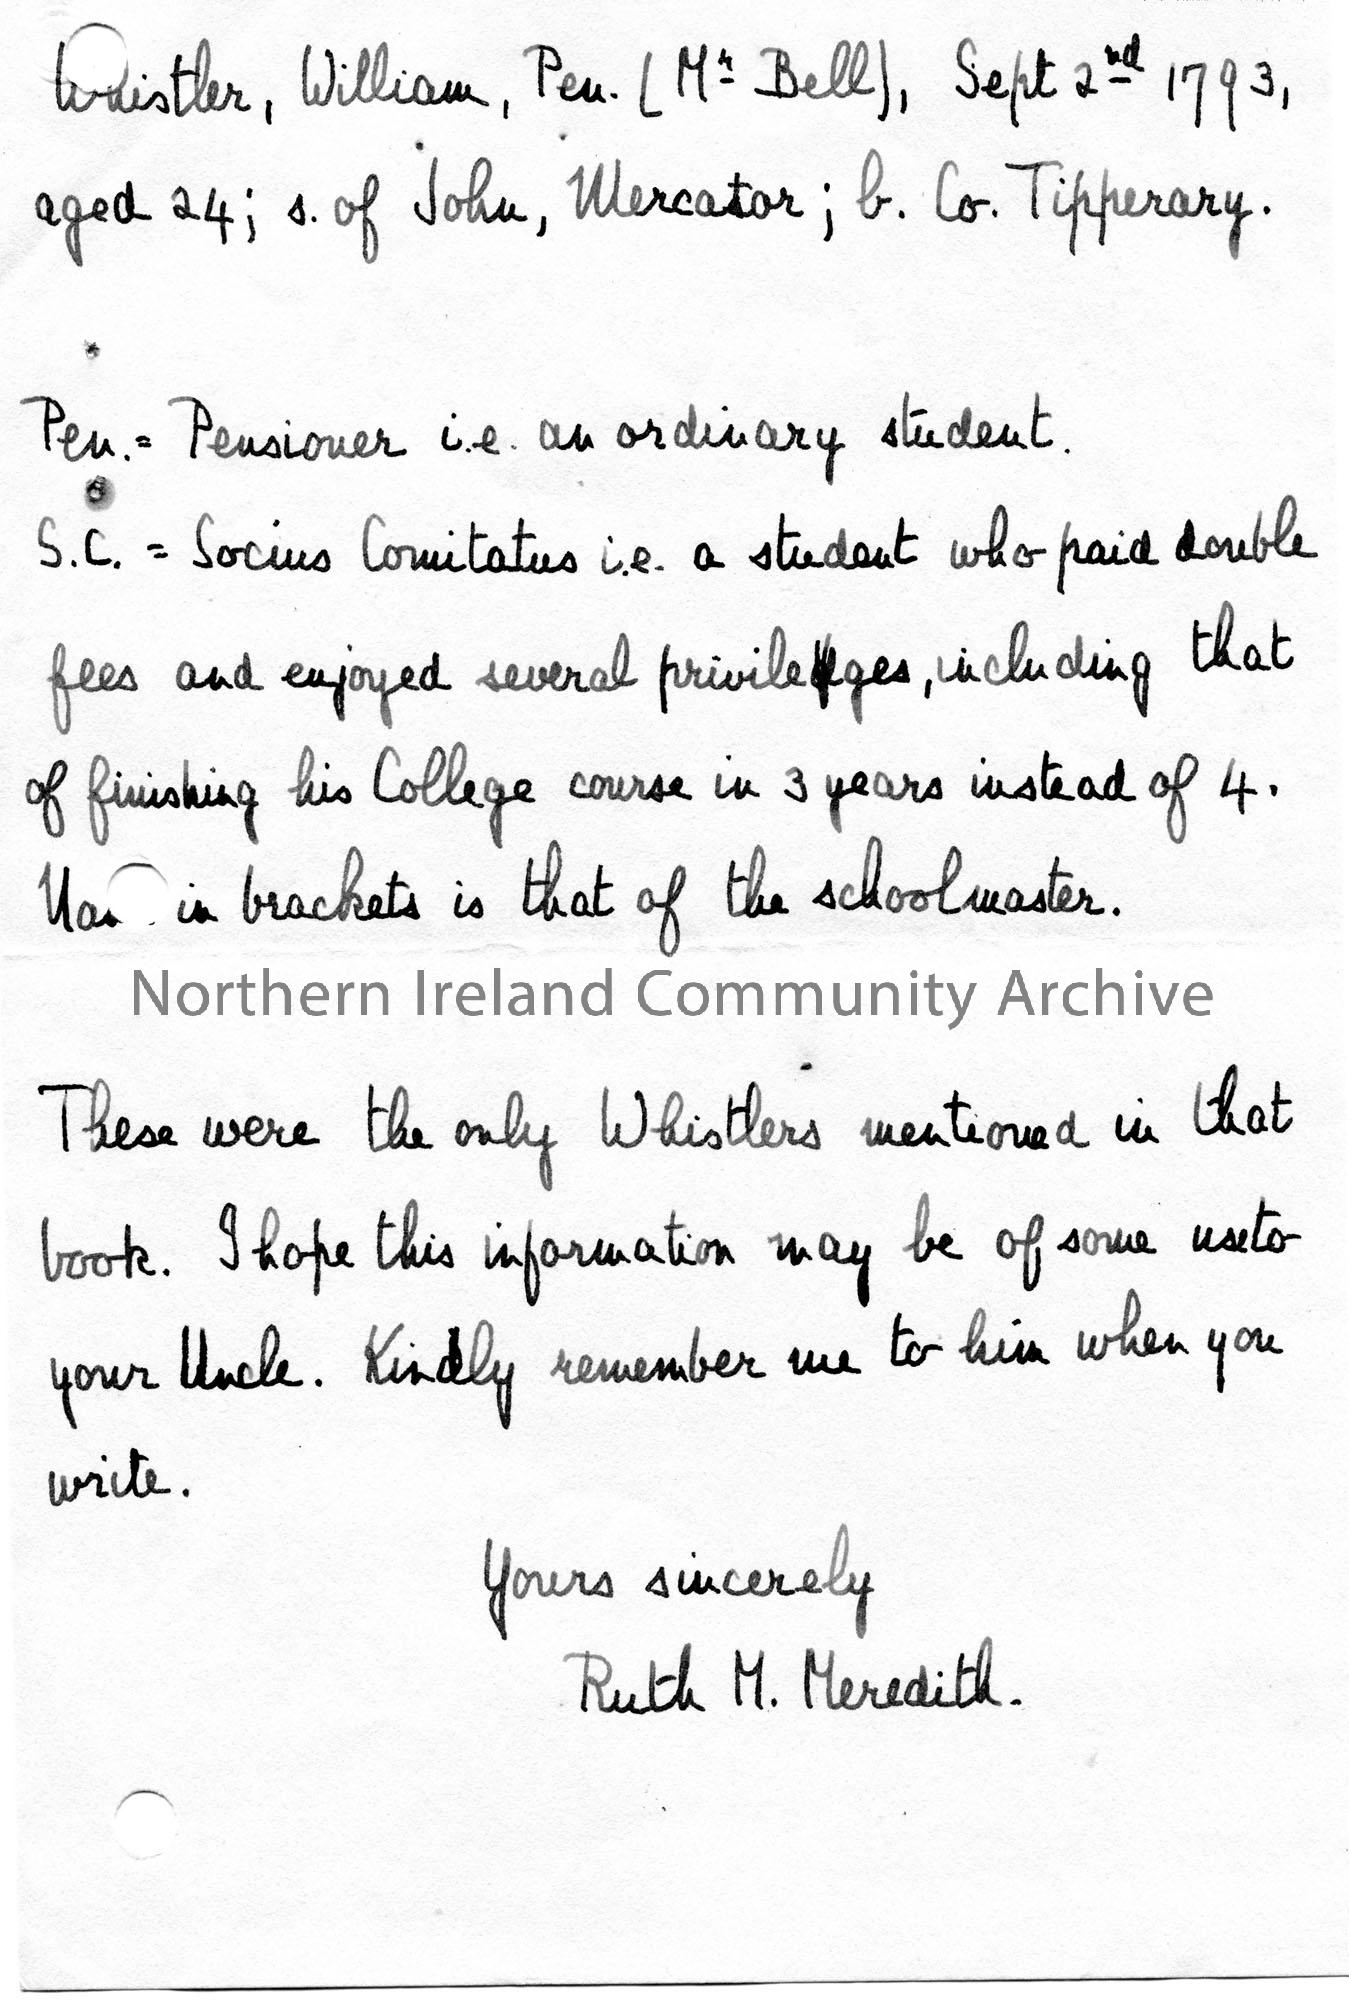 Whistler, William, Pen. (Mr Bell), Sept 2nd 1793,
aged 24; s. of John, Mercator; b. Co. Tipperary.
Pen. = Pensioner i.e. an ordinary student.
S.C. = Socius Comitatus i.e. a student who paid double
fees and enjoyed several privileges, including that
of finishing his College course in 3 years instead of 4.
in brackets is that of the schoolmaster.
Northern Ireland Community Archive
These were the only Whistlers mentioned in that
book. I hope this information may be of some use to
your Uncle. Kindly remember me to him when you
write.
Yours sincerely
Ruth M. Meredith.